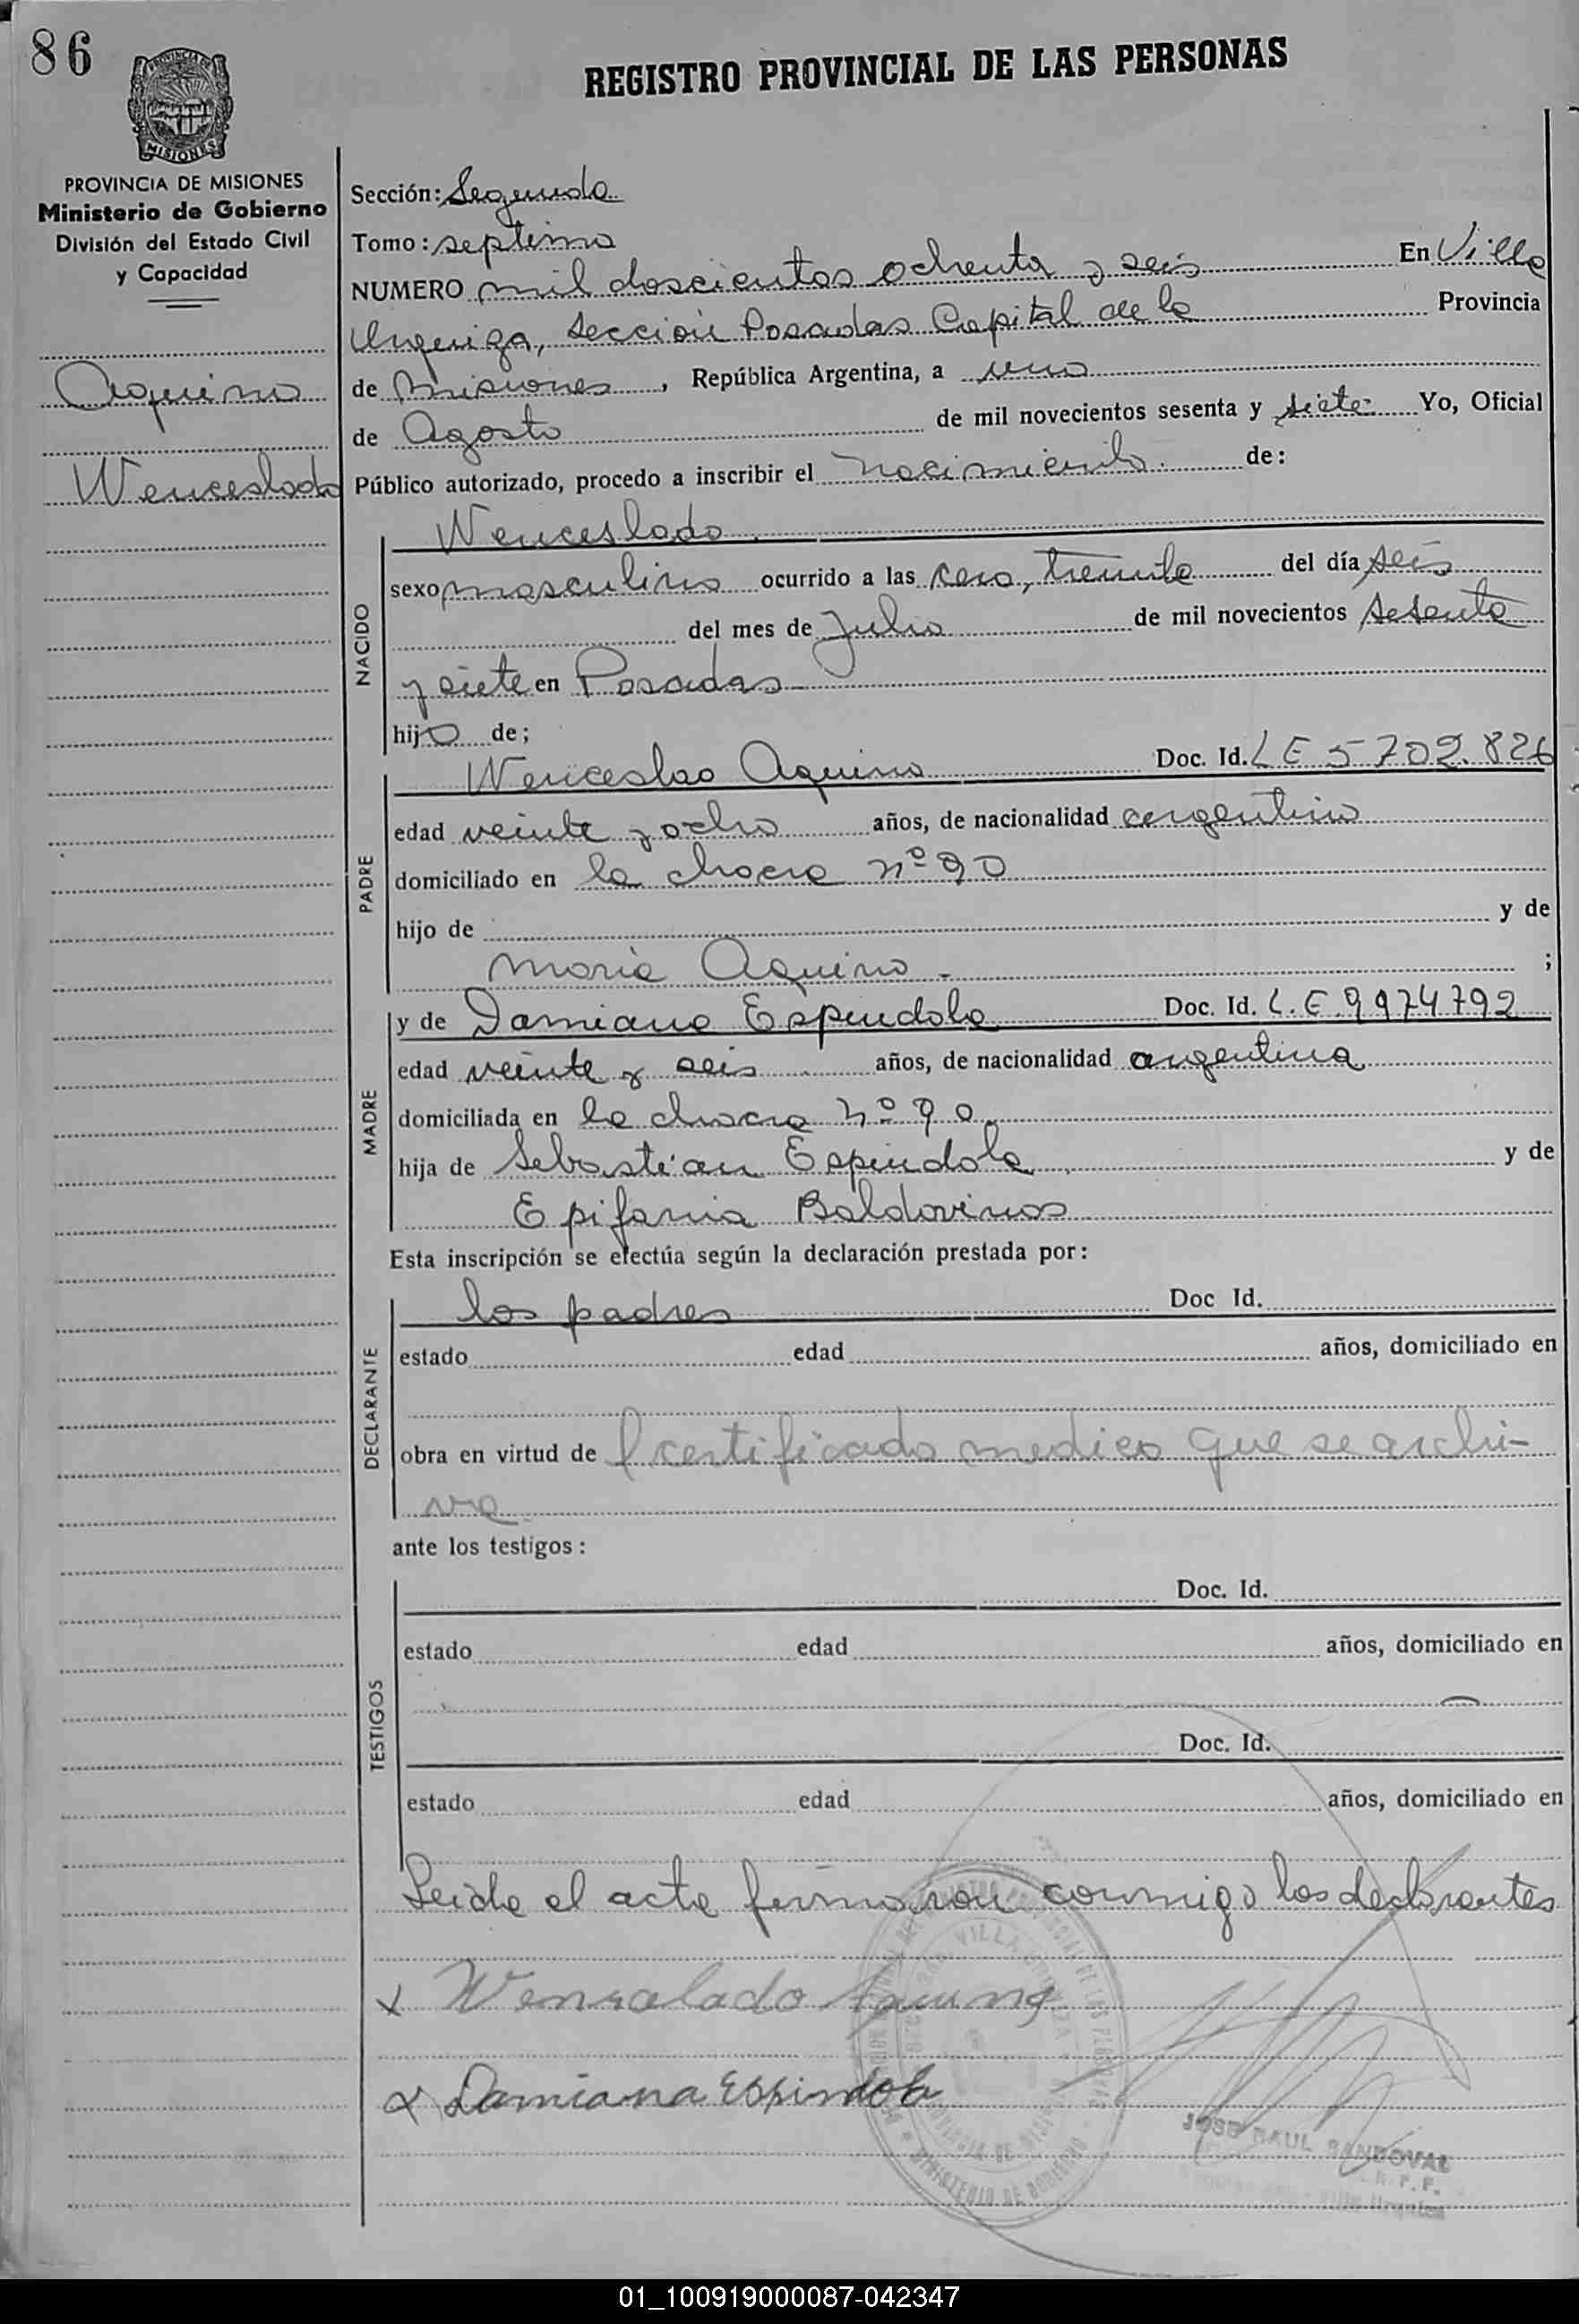 86
REGISTRO PROVINCIAL DE LAS PERSONAS
MISIONES
PROVINCIA DE MISIONES
Ministerio de Gobierno
División del Estado Civil
y Capacidad
Aquino
Wenceslado
Sección: Segunda
Tomo: septimo
NUMERO mil doscientos ochenta y seis En Villa
Urquiza, Sección Posadas Capital de la Provincia
de Misiones, República Argentina, a uno
de Agosto de mil novecientos sesenta y siete Yo, Oficial
Público autorizado, procedo a inscribir el nacimiento de:
NACIDO
Wenceslado
sexo masculino ocurrido a las cero, treinta del día seis
del mes de Julio de mil novecientos sesenta
y siete en Posadas
hijo de;
PADRE
Wenceslao Aquino Doc. Id. LE 5702.826
edad veinte y ocho años, de nacionalidad argentino
domiciliado en la chacra nº 90
hijo de y de
Maria Aquino ;
MADRE
y de Damiana Espindola Doc. Id. L.E. 9974792
edad veinte y seis años, de nacionalidad argentina
domiciliada en la chacra nº 90
hija de Sebastian Espindola y de
Epifania Baldovinos
Esta inscripción se efectúa según la declaración prestada por:
DECLARANTE
los padres Doc Id.
estado edad años, domiciliado en
obra en virtud de l certificado medico que se archi-
va
ante los testigos:
TESTIGOS
Doc. Id.
estado edad años, domiciliado en
Doc. Id.
estado edad años, domiciliado en
Leida el acta firmaron conmigo los declarantes
x Wensalado
x Damiana Espindola
JOSE RAUL SANDOVAL
01_100919000087-042347